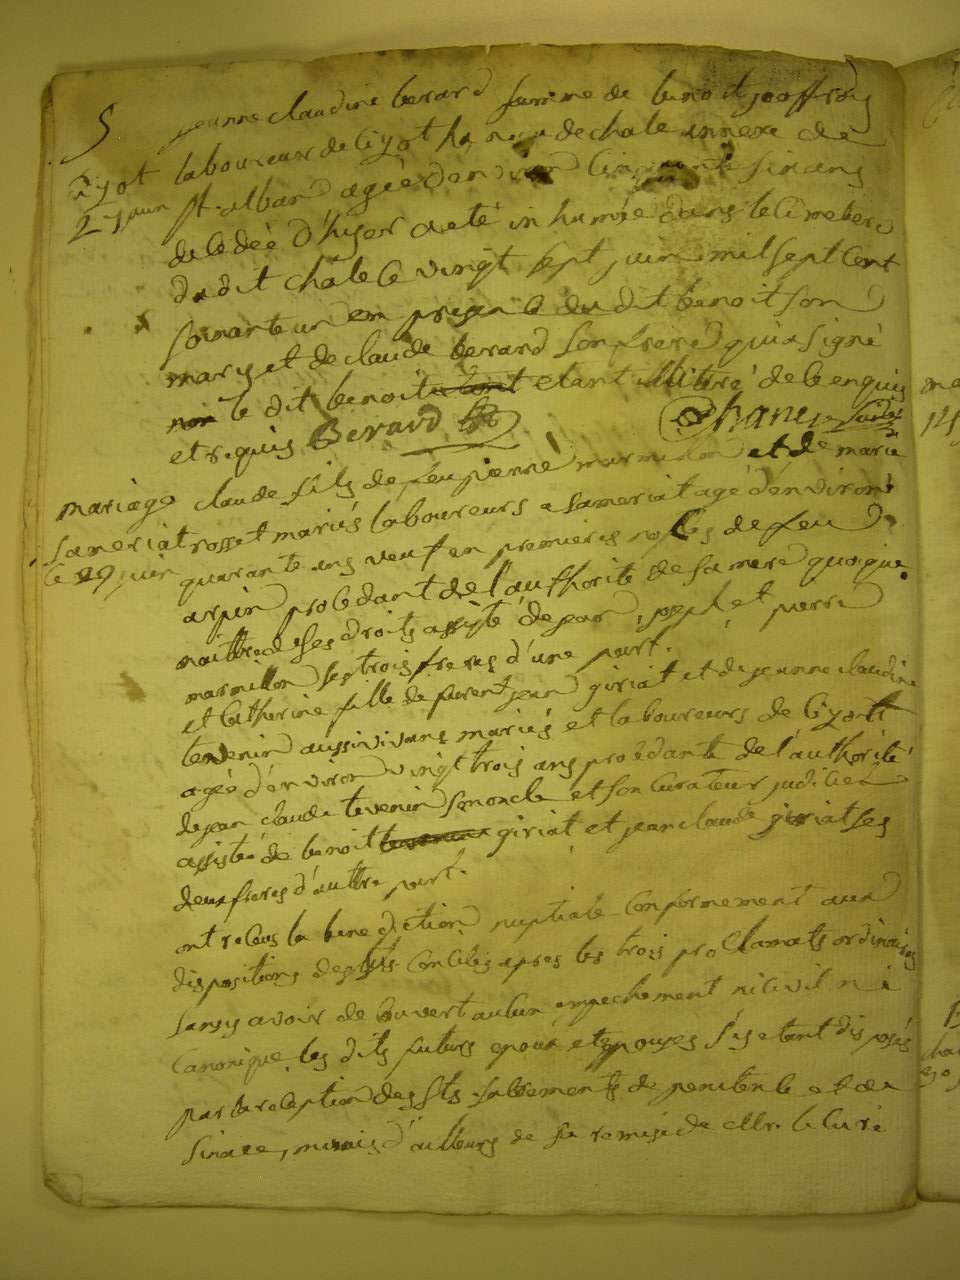 S jeanne claudine berard famme de benoit joffroy
cizot laboureur de Cizot ha de chale annexe de
27 juin St. alban agée d'environ Cinquante six ans
decedée d'hyer a eté inhumée dans le Cimetiere
du dit chale le vingt sept juin mil sept Cent
soixante un em presence du dit benoit son
mary et de claude berard son frere qui a signé
non le dit benoit etant illitéré de ce enquis
et requis Berard
mariage claude fils de feu pierre marmillon et de marie
sameriat rosset mariés laboureurs a sameriat agé d'environ
le 29 juin quarante ans veuf en premieres noces de feu
arpin procedant de l'authorité de sa mere quoique
maittre de ses droits assisté de jean, joseph et pierre
marmillon ses trois freres d'une part.
et Catherine fille de jean giriat et de jeanne claudine
tevenin aussi vivans mariés et laboureurs de Cizott
agée d'environ vingt trois ans procedante de l'authorité
de jean claude tevenin son oncle et son Curateur judiciel
assistée de benoit giriat et jean claude giriat ses
deux freres d'auttre part.
ont recus la benediction nuptiale Conformement aux
dispositions des Sts Conciles apres les trois proclamats ordinaires
sans y avoir decouvert aucun empechement ni Civil ni
Canonique, les dits futurs epoux et epouses s'y etant disposés
par la reception des Sts sacrements de penitence et de
, munis d'ailleurs de la remise de Mr. le Curé